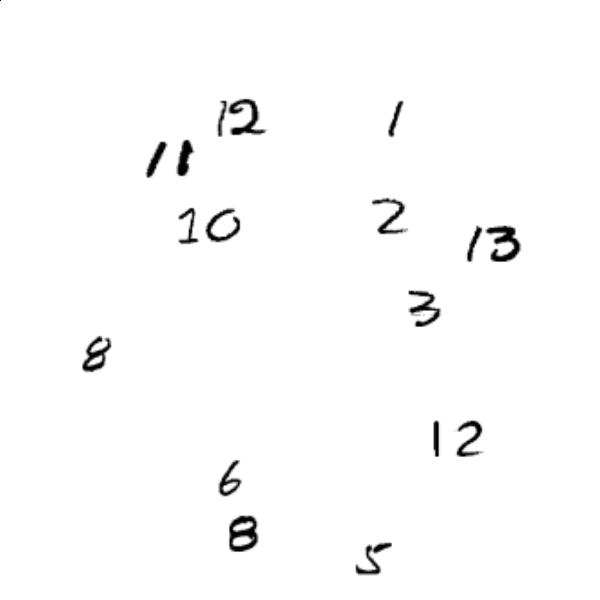 12
1
11
10
2
13
3
8
12
6
8
5